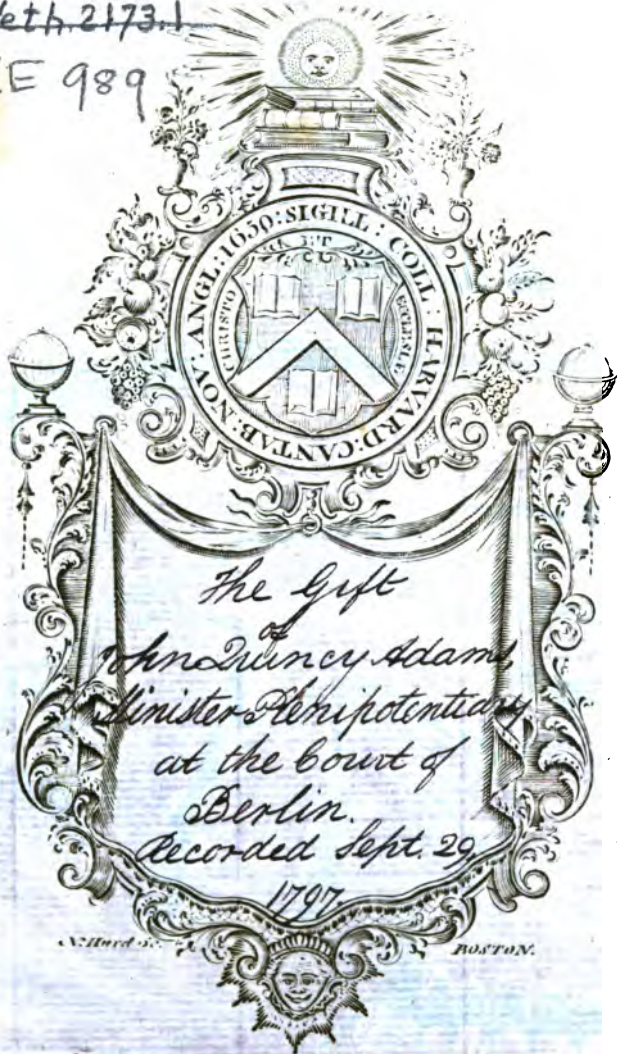 eth 2173.1
E 989
SIGILL : COLL : HARVARD: CANTAB: NOV: ANGL: 1650:
ET
CHRISTO
ECCLESIÆ
The Gift
of
John Quincy Adams,
Minister Plenipotentiary
at the Court of
Berlin.
Recorded Sept. 29,
1797.
N. Hurd Sc.
BOSTON.